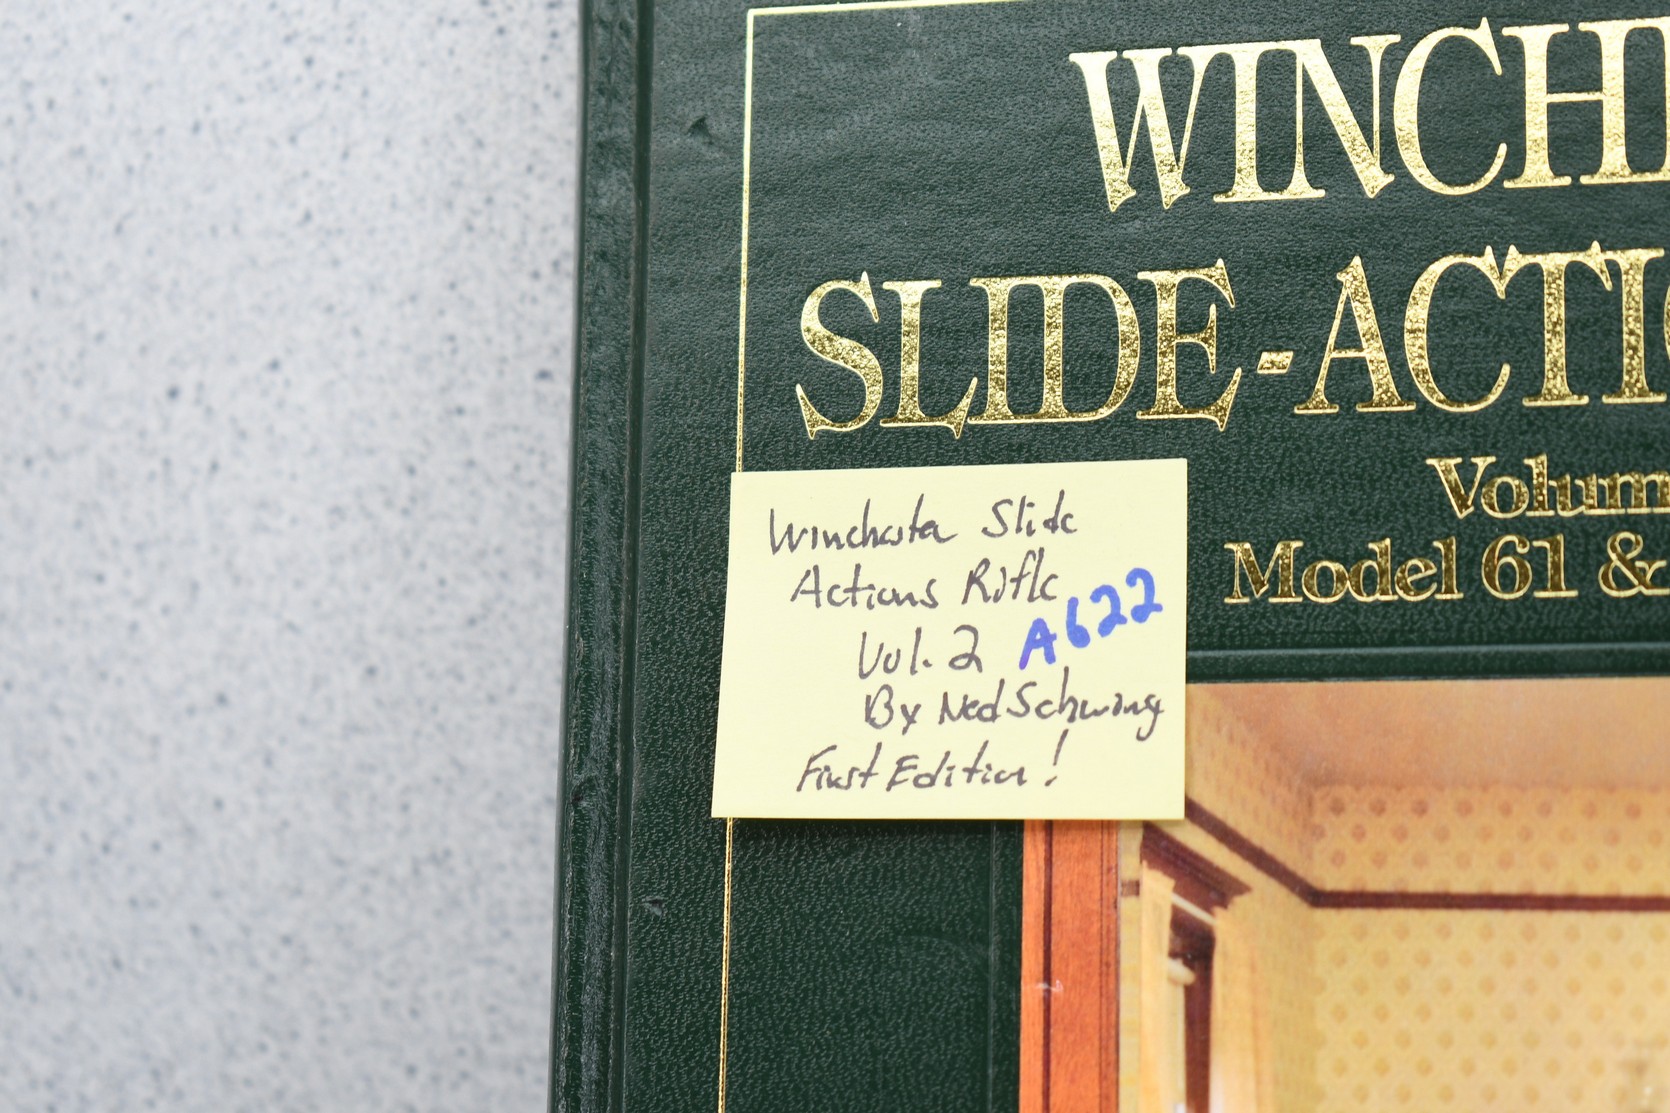 WINCH
SLIDE-ACTI
Volum
Model 61 &
Winchester Slide
Actions Rifle
Vol. 2 A622
By Ned Schwing
First Edition!